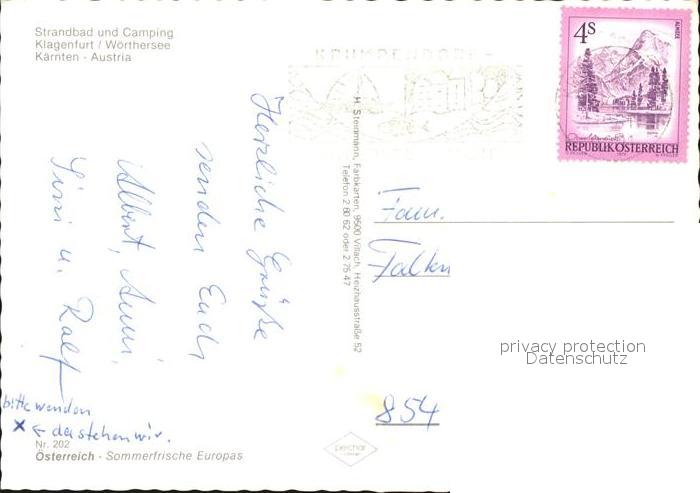 Strandbad und Camping
Klagenfurt / Wörthersee
Kärnten - Austria
Herzliche Grüße
senden Euch
Albert, Anni,
Sissi u. Ralf
bitte wenden
x ← da stehen wir.
Nr. 202
Österreich - Sommerfrische Europas
H. Steinmann, Farbkarten, 9500 Villach, Heizhausstraße 52
Telefon 2 60 62 oder 2 75 47
KRUMPENDORF
4S
ALMSEE
REPUBLIK ÖSTERREICH
Fam.
Falken
privacy protection
Datenschutz
854